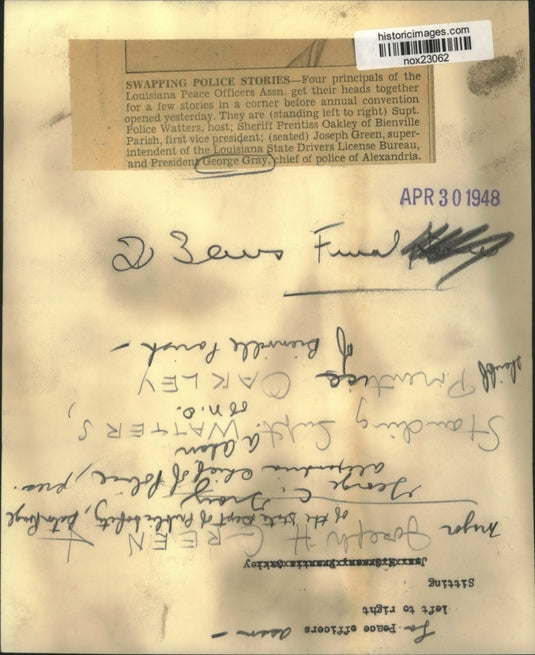 historicimages.com
nox23062
SWAPPING POLICE STORIES—Four principals of the
Louisiana Peace Officers Assn. get their heads together
for a few stories in a corner before annual convention
opened yesterday. They are (standing left to right) Supt.
Police Watters, host; Sheriff Prentiss Oakley of Bienville
Parish, first vice president; (seated) Joseph Green, super-
intendent of the Louisiana State Drivers License Bureau,
and President George Gray, chief of police of Alexandria.
APR 30 1948
La Peace officers assn —
left to right
Sitting
Major Joseph H GREEN
of the State Dept of Public Safety, Baton Rouge
George C. Gray
Alexandria Chief of Police, pres.
Standing Supt. WATTERS,
of N.O.
Sheriff Prentice OAKLEY
of Bienville Parish —